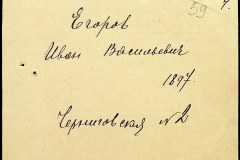 59
Егоров
Иван Васильевич
1897
Черниговская № 2